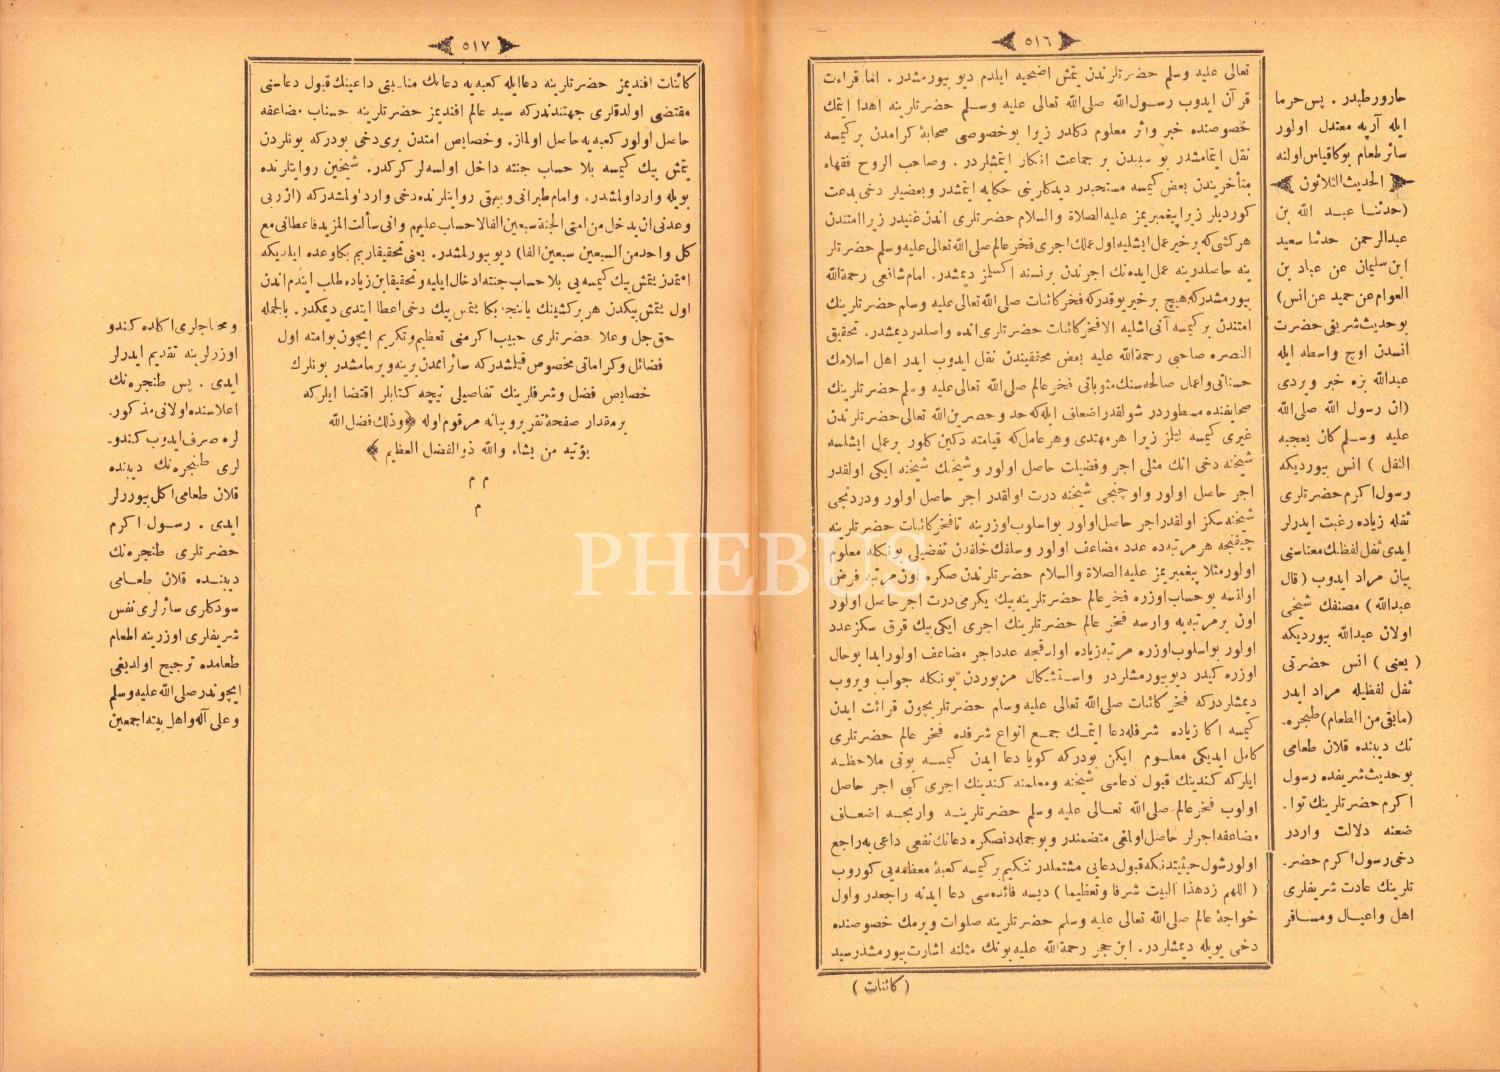 ٥١٦
تعالی علیه وسلم حضرتلرندن یتمش اضحیه ایلدم دیو بیورمشدر . اما قراءت
قرآن ایدوب رسول الله صلی الله تعالی علیه وسلم حضرتلرینه اهدا ایتمك
خصوصنده خبر واثر معلوم دکلدر زیرا بو خصوصی صحابهٔ کرامدن بر کیمسه
نقل ایتمامشدر بو سببدن بر جماعت انکار ایتمشلردر . وصاحب الروح فقهاء
متأخریندن بعض کیمسه مستحبدر دیدکلرینی حکایه ایتمشدر وبعضیلر دخی بدعت
کوردیلر زیرا پیغمبریمز علیه الصلاة والسلام حضرتلری اندن غنیدر زیرا امتندن
هر کشی که بر خیر عمل ایشلیه اول عملك اجری فخر عالم صلی الله تعالی علیه وسلم حضرتلر
ینه حاصلدر ینه عمل ایده نك اجرندن بر نسنه اکسلمز دیمشدر . امام شافعی رحمة الله
بیورمشدر که هیچ بر خیر یوقدر که فخر کائنات صلی الله تعالی علیه وسلم حضرتلرینك
امتندن بر کیمسه آنی اشلیه الا فخر کائنات حضرتلری انده واصلدر دیمشدر . تحقیق
النصره صاحبی رحمة الله علیه بعض محققیندن نقل ایدوب ایدر اهل اسلامك
حسناتی واعمال صالحه سنك مثوباتی فخر عالم صلی الله تعالی علیه وسلم حضرتلرینك
صحایفنده مسطوردر شولقدر اضعاف ایله که حد و حصرین الله تعالی حضرتلرندن
غیری کیمسه بیلمز زیرا هر مهتدی وهر عامل که قیامته دکین کلور بر عمل ایشلسه
شیخنه دخی انك مثلی اجر وفضیلت حاصل اولور وشیخنك شیخنه ایکی اولقدر
اجر حاصل اولور واوچنجی شیخنه درت اولقدر اجر حاصل اولور ودردنجی
شیخنه سکز اولقدر اجر حاصل اولور بو اسلوب اوزرینه تا فخر کائنات حضرتلرینه
چیقنجه هر مرتبه ده عدد مضاعف اولور وسلفك خلفدن تفضیلی بونکله معلوم
اولور مثلا پیغمبریمز علیه الصلاة والسلام حضرتلرندن صکره اون مرتبه فرض
اولنسه بو حساب اوزره فخر عالم حضرتلرینه بیك یکرمی درت اجر حاصل اولور
اون بر مرتبه یه وارسه فخر عالم حضرتلرینك اجری ایکی بیك قرق سکز عدد
اولور بو اسلوب اوزره مرتبه زیاده اولدقجه عدد اجر مضاعف اولور ابدا بو حال
اوزره کیدر دیو بیورمشلردر واستشکال مزبوردن بونکله جواب ویروب
دیمشلردر که فخر کائنات صلی الله تعالی علیه وسلم حضرتلریچون قرائت ایدن
کیمسه اکا زیاده شرفله دعا ایتمك جمیع انواع شرفده فخر عالم حضرتلری
کامل ایدیکی معلوم ایکن بودر که کویا دعا ایدن کیمسه بونی ملاحظه
ایلر که کندینك قبول دعاسی شیخنه ومعلمنه کندینك اجری کبی اجر حاصل
اولوب فخر عالم صلی الله تعالی علیه وسلم حضرتلرینه وارنجه اضعاف
مضاعفه اجرلر حاصل اولمغی متضمندر وبو جمله دنصکره دعانك نفعی داعی یه راجع
اولور شول حیثیتدنکه قبول دعایی مشتملدر نتکیم بر کیمسه کعبهٔ معظمه یی کوروب
( اللهم زد هذا البیت شرفا وتعظیما ) دیسه فائده سی دعا ایدنه راجعدر واول
خواجهٔ عالم صلی الله تعالی علیه وسلم حضرتلرینه صلوات ویرمك خصوصنده
دخی بویله دیمشلردر . ابن حجر رحمة الله علیه بونك مثلنه اشارت بیورمشدر سید
( کائنات )
حاروررطبدر . پس خرما
ایله آرپه معتدل اولور
سائر طعام بوکا قیاس اولنه
الحدیث الثلاثون
(حدثنا عبد الله بن
عبدالرحمن حدثنا سعید
ابن سلیمان عن عباد بن
العوام عن حمید عن انس)
بو حدیث شریفی حضرت
انسدن اوچ واسطه ایله
عبدالله بزه خبر ویردی
(ان رسول الله صلی الله
علیه وسلم کان یعجبه
الثفل ) انس بیوردیکه
رسول اکرم حضرتلری
ثفله زیاده رغبت ایدرلر
ایدی ثفل لفظنك معناسنی
بیان مراد ایدوب ( قال
عبدالله ) مصنفك شیخی
اولان عبدالله بیوردیکه
( یعنی ) انس حضرتی
ثفل لفظیله مراد ایدر
(مابقی من الطعام) طنجره
نك دیبنده قلان طعامی
بو حدیث شریفده رسول
اکرم حضرتلرینك توا
ضعنه دلالت واردر
دخی رسول اکرم حضر
تلرینك عادت شریفلری
اهل واعیال ومسافر
٥١٧
کائنات افندیمز حضرتلرینه دعا ایله کعبه یه دعانك مناسبتی داعینك قبول دعاسنی
مقتضی اولدقلری جهتندندر که سید عالم افندیمز حضرتلرینه حسنات مضاعفه
حاصل اولور کعبه یه حاصل اولماز . وخصایص امتدن بری دخی بودر که بونلردن
یتمش بیك کیمسه بلا حساب جنته داخل اولسه لر کرکدر . شیخین روایتلرنده
بویله وارد اولمشدر . وامام طبرانی وبیهقی روایتلرنده دخی وارد اولمشدر که (ان ربی
وعدنی ان یدخل من امتی الجنة سبعین الفا لا حساب علیهم وانی سألت المزید فاعطانی مع
کل واحد من السبعین سبعین الفا) دیو بیورلمشدر . یعنی تحقیقا ربم بکا وعده ایلدیکه
امتمدن یتمش بیك کیمسه یی بلا حساب جنته ادخال ایلیه وتحقیقا بن زیاده طلب ایتدم اندن
اول یتمش بیکدن هر بر کشینك یاننجه بکا یتمش بیك دخی اعطا ایتدی دیمکدر . بالجمله
حق جل وعلا حضرتلری حبیب اکرمنی تعظیم وتکریم ایچون بو امته اول
فضائل وکراماتی مخصوص قیلمشدر که سائر امدن برینه ویرمامشدر بونلرك
خصایص فضل وشرفلرینك تفاصیلی نیجه کتابلر اقتضا ایلر که
بر مقدار صفحهٔ تقریر وبیانه مرقوم اوله ﴿ وذلك فضل الله
یؤتیه من یشاء والله ذو الفضل العظیم ﴾
م م
م
ومحتاجلری اکاده کندو
اوزرلرینه تقدیم ایدرلر
ایدی . پس طنجره نك
اعلاسنده اولانی مذکور
لره صرف ایدوب کندو
لری طنجره نك دیبنده
قلان طعامی اکل بیوررلر
ایدی . رسول اکرم
حضرتلری طنجره نك
دیبنده قلان طعامی
سودکلری سائرلری نفس
شریفلری اوزرینه اطعام
طعامده ترجیح اولدیغی
ایچوندر صلی الله علیه وسلم
وعلی آله واهل بیته اجمعین
PHEBUS